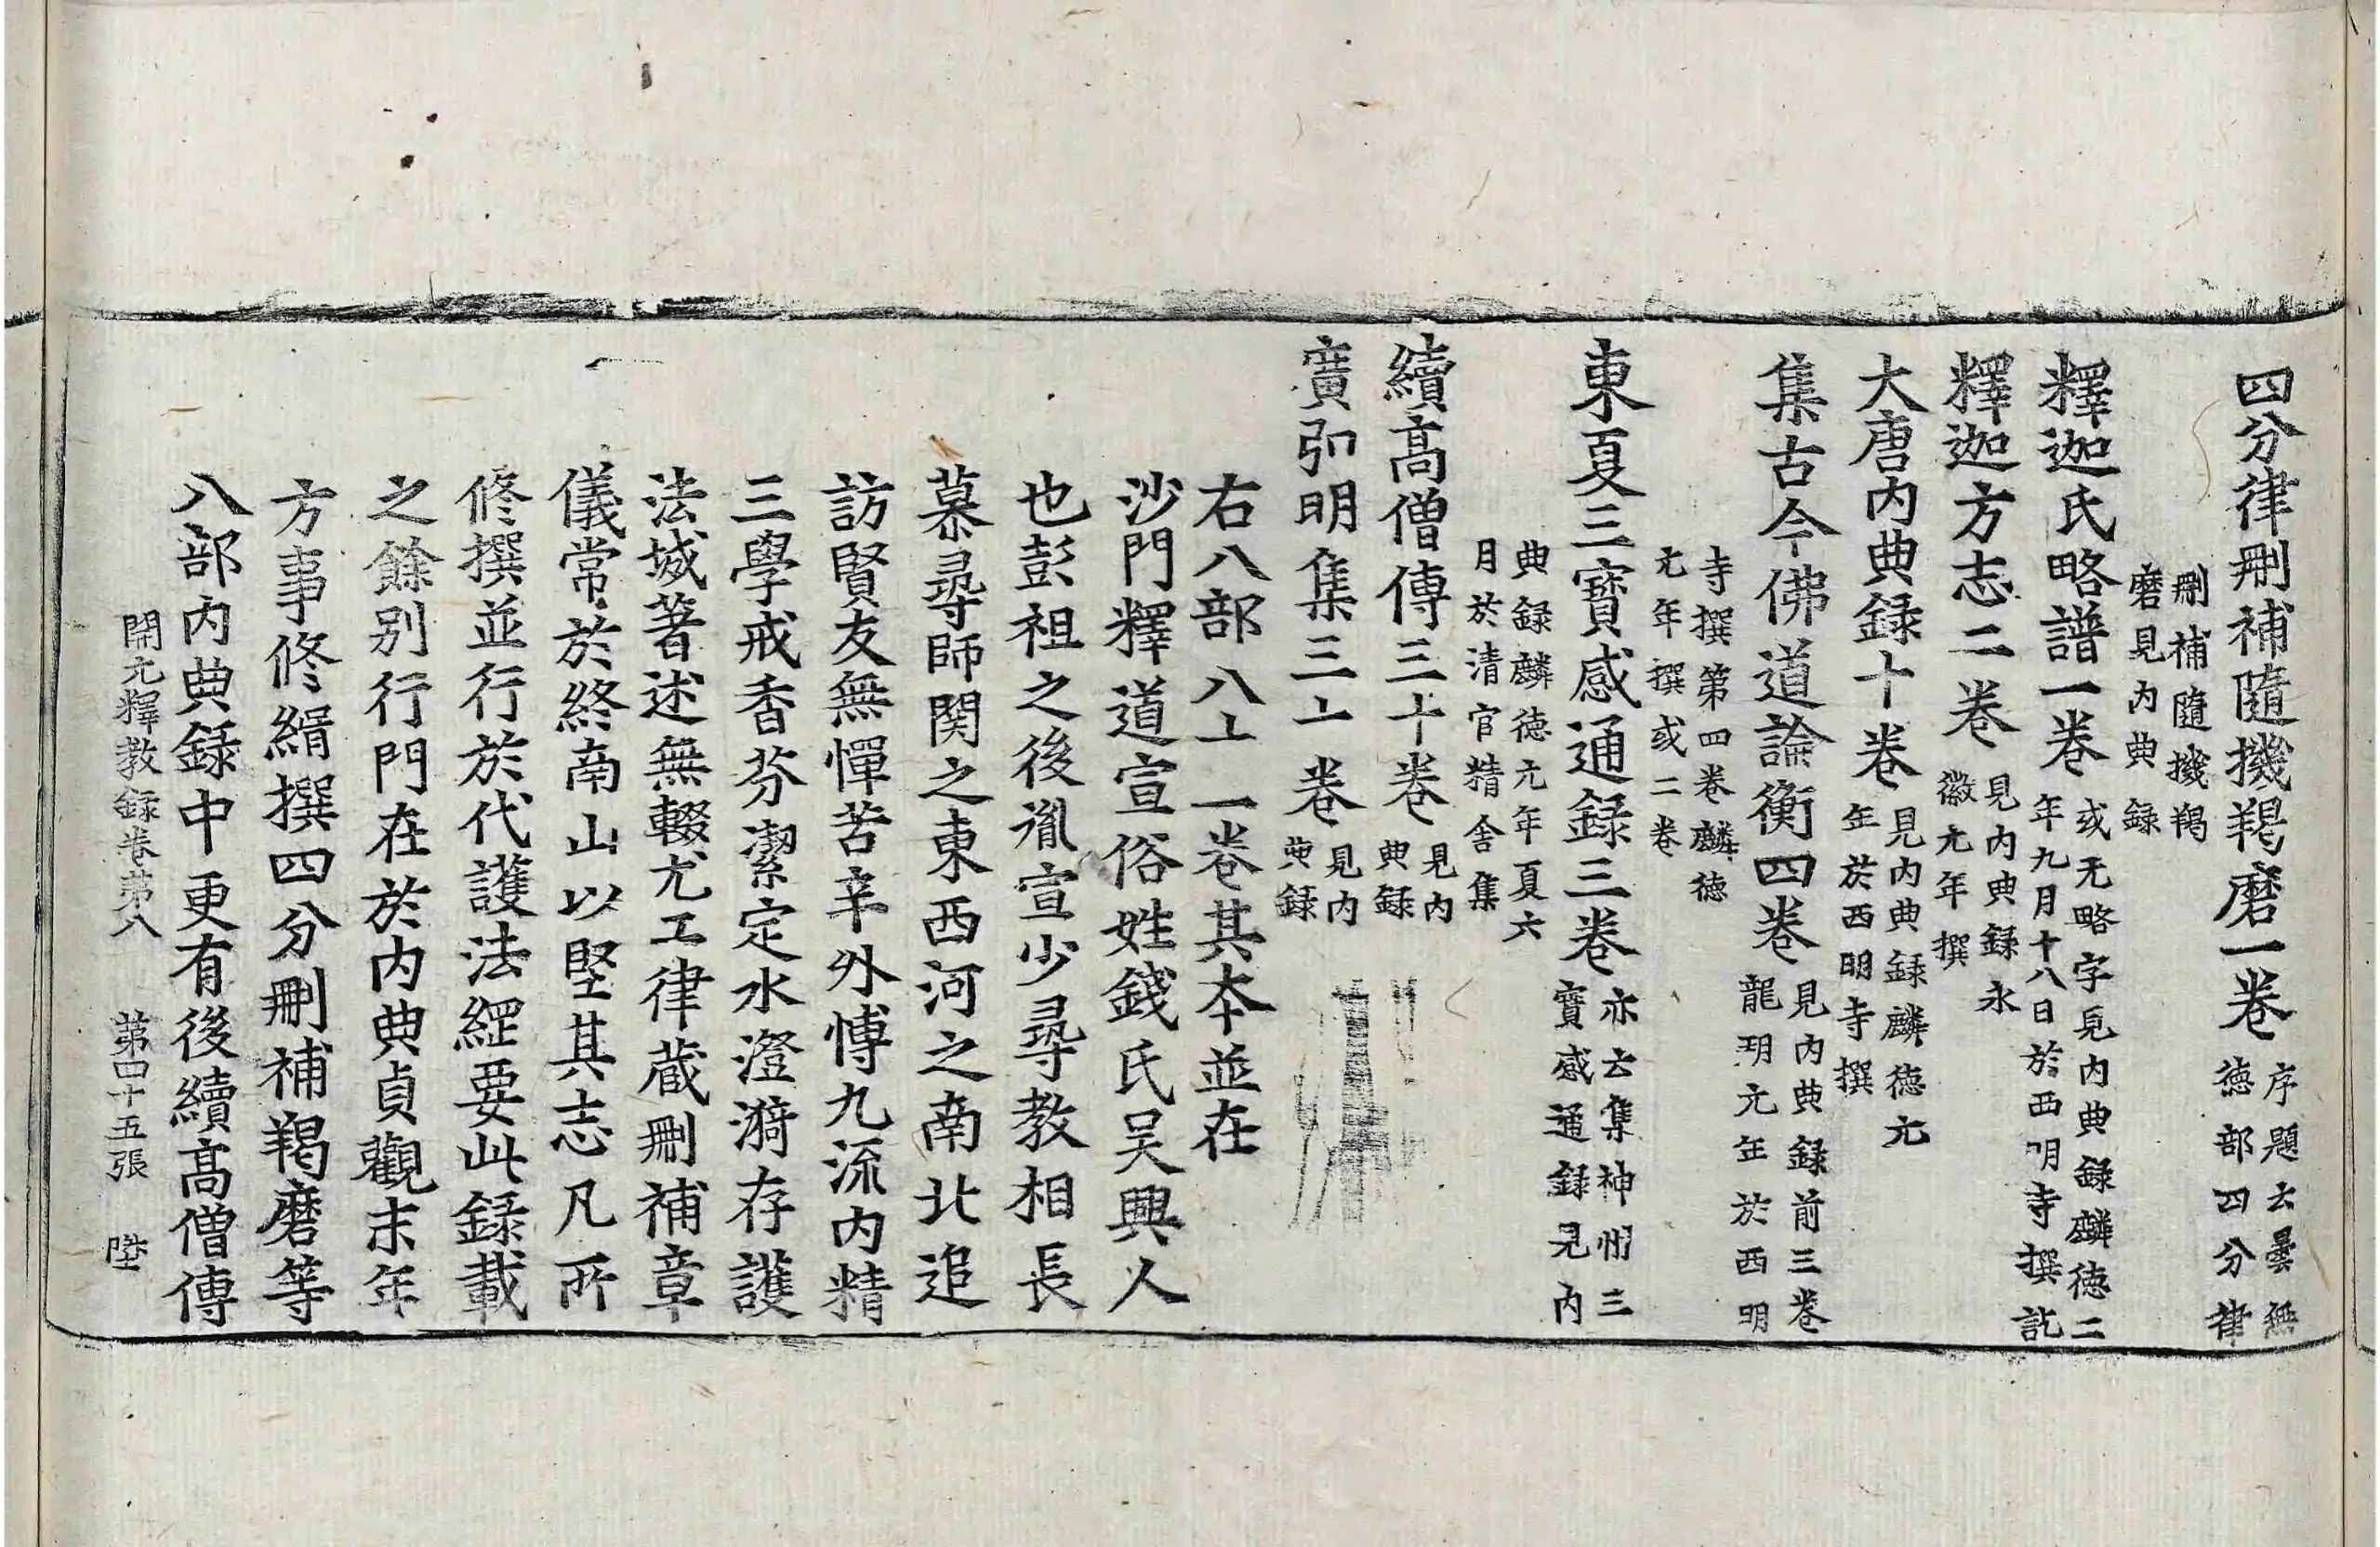 四分律刪補隨機羯磨一卷 序題云曇無德部四分律
刪補隨機羯磨見內典録
釋迦氏略譜一卷 或无略字見內典録麟德二年九月十八日於西明寺撰訖
釋迦方志二卷 見內典録永徽元年撰
大唐內典録十卷 見內典録麟德元年於西明寺撰
集古今佛道論衡四卷 見內典録前三卷龍朔元年於西明
寺撰第四卷麟德元年撰或二卷
東夏三寶感通録三卷 亦云集神州三寶感通録見內
典録麟德元年夏六月於清官精舍集
續高僧傳三十卷 見內典録
廣弘明集三十卷 見內典録
右八部八十一卷其本並在
沙門釋道宣俗姓錢氏吳興人
也彭祖之後胤宣少尋教相長
慕尋師関之東西河之南北追
訪賢友無憚苦辛外博九流内精
三學戒香芬潔定水澄漪存護
法城著述無輟尤工律蔵刪補章
儀常於終南山以堅其志凡所
修撰並行於代護法綱要此録載
之餘別行門在於内典貞觀末年
方事修緝撰四分刪補羯磨等
八部内典録中更有後續高僧傳
開元釋教録卷第八 第四十五張 陞